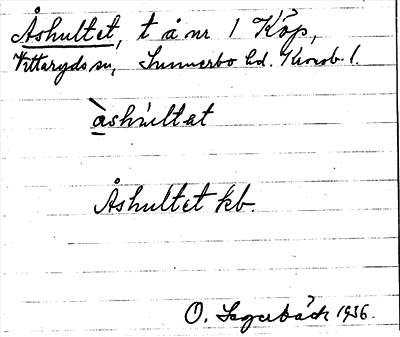 Åshultet, t å nr 1 Köp,
Vittaryds sn, Sunnerbo hd. Kronob. l.
àshúltet
Åshultet kb.
O. Lagerbäck 1936.